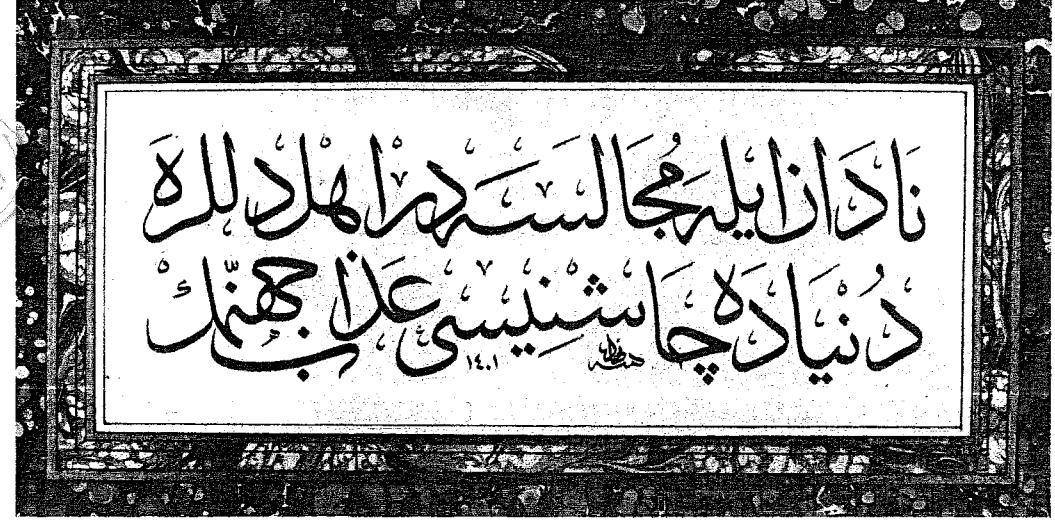 نَادَان ايله مُجَالسَه در اهل دللره
دُنْيَاده چَاشنِيسى عذاب جهنّمك
١٤٠١